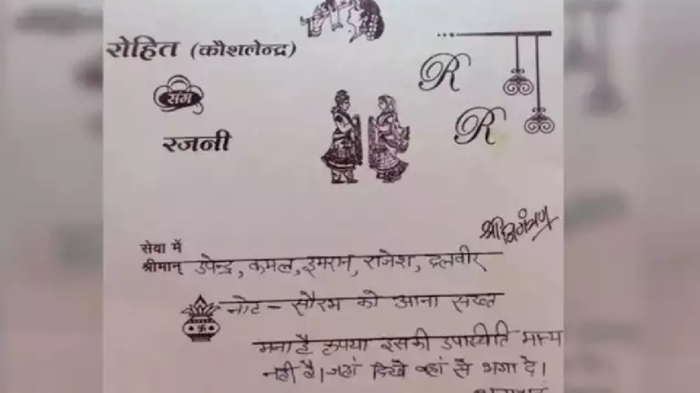 रोहित (कौशलेन्द्र)
संग
रजनी
R
R
श्री निमंत्रण
सेवा में
श्रीमान् उपेन्द्र, कमल, इमरान, राजेश, दलवीर
नोट – सौरभ को आना सख्त
मना है कृपया इसकी उपास्थिति मान्य
नहीं है। जहां दिखे वहां से भगा दे।